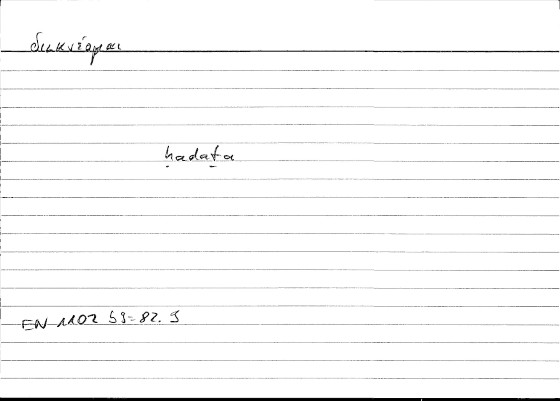 διικνέομαι
ḥadaṯa
EN 1102 b9 = 82. 9